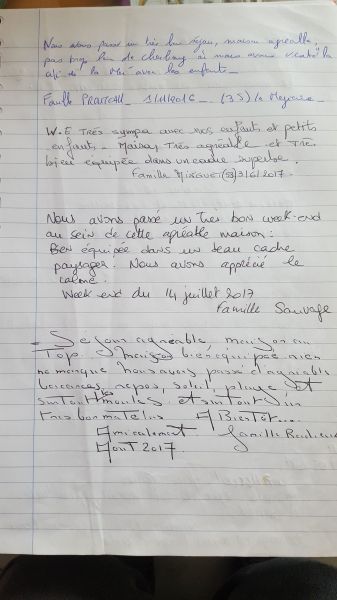 Nous avons passé un très bon séjour, maison agréable,
pas trop loin de cherbourg où nous avons visité "la
cité de la Mer" avec les enfants.
Famille 1/11/2016 (35) la
W.E Très sympa avec nos enfants et petits
enfants. Maison Très agréable et Très
bien équipée dans un cadre superbe.
Famille (53) 3/6/2017.
Nous avons passé un Très bon week-end
au sein de cette agréable maison:
Bien équipée dans un beau cadre
paysager. Nous avons apprécié le
calme.
Week end du 14 juillet 2017
Famille Sauvage
- Séjour agréable, maison au
Top. bien equipée rien
ne manque nous avons passé d'agréable
vacances, repos, soleil, plage et
surtout les moules et surtout un
tres bon matelas A Bientôt...
Amicalement. famille
Aout 2017.